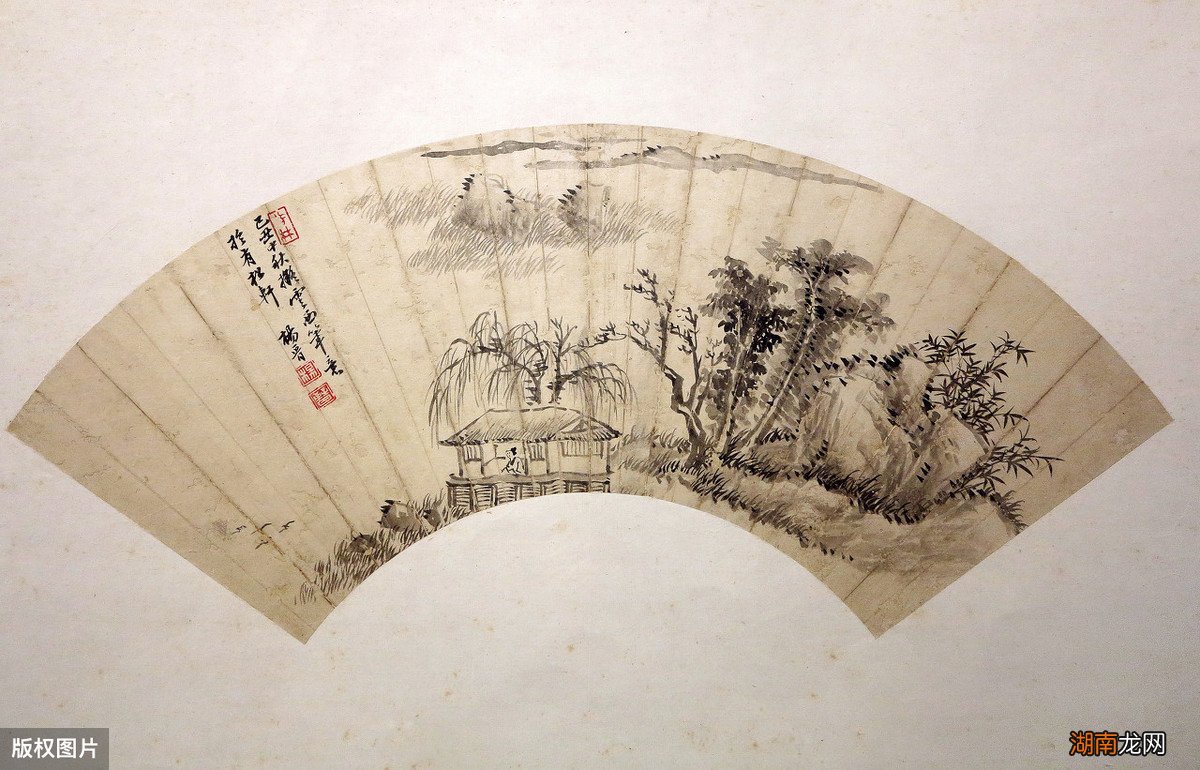 己丑中秋擬雲西筆意
於有松軒
楊晋
版权图片
湖南龙网